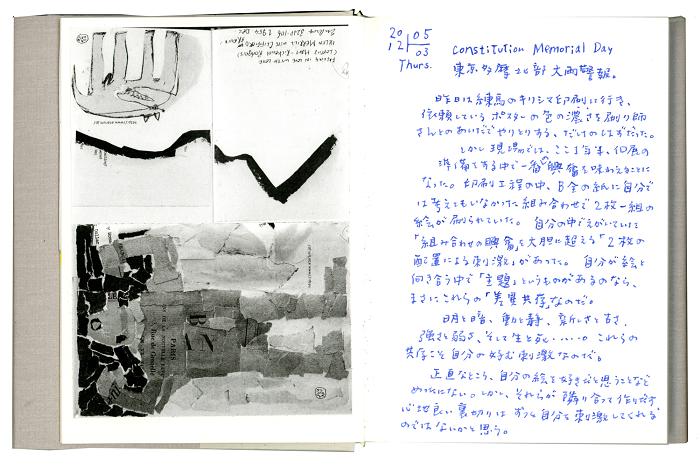 20 05
12 03
Thurs.
Constitution Memorial Day
東京多摩北部 大雨警報。
昨日は練馬のキリシマ印刷に行き、
依頼している ポスターの色の濃さを刷り師
さんとのあいだでやりとりする、だけのはずだった。
しかし現場では、ここ1年半、個展の
準備をする中で一番"興奮を味わえることに
なった。印刷工程の中、B全の紙に自分で
は考えてもいなかった組み合わせで2枚一組の
絵が刷られていた。 自分の中でえがいていた
「組み合わせの興奮」を大胆に超える「2枚の
配置による刺激」があった。 自分が絵と
向き合う中で「主題」というものがあるのなら、
まさにこれらの「差異共存」なのだ。
明と暗、動と静、新しさと古さ、
強さと弱さ、そして生と死・・・・。これらの
共存こそ自分の好む刺激なのだ。
正直なところ、自分の絵を好きだと思うことなど
めったにない。しかし、それらが 隣り合って作りだす
心地良い裏切りは ずっと自分を刺激してくれる
のではないかと思う。
FALLING IN LOVE WITH LOVE
HELEN MERRILL WITH CLIFFORD
EmArcy
PARIS